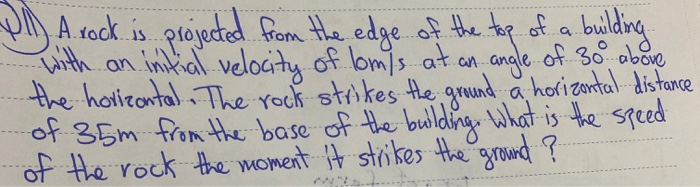 Q1) A rock is projected from the edge of the top of a building
with an initial velocity of 10m/s at an angle of 30° above
the horizontal. The rock strikes the ground a horizontal distance
of 35m from the base of the building. What is the speed
of the rock the moment it strikes the ground?